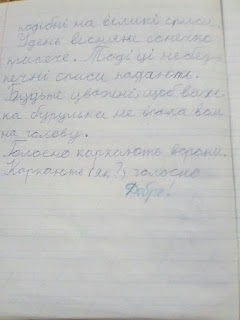 подібні на великі списи.
Удень весняне сонечко
припече. Тоді ці небез-
печні списи падають.
Будьте уважні, щоб важ-
ка бурулька не впала вам
на голову.
Голосно каркають ворони.
Каркають (як?) голосно
Добре!